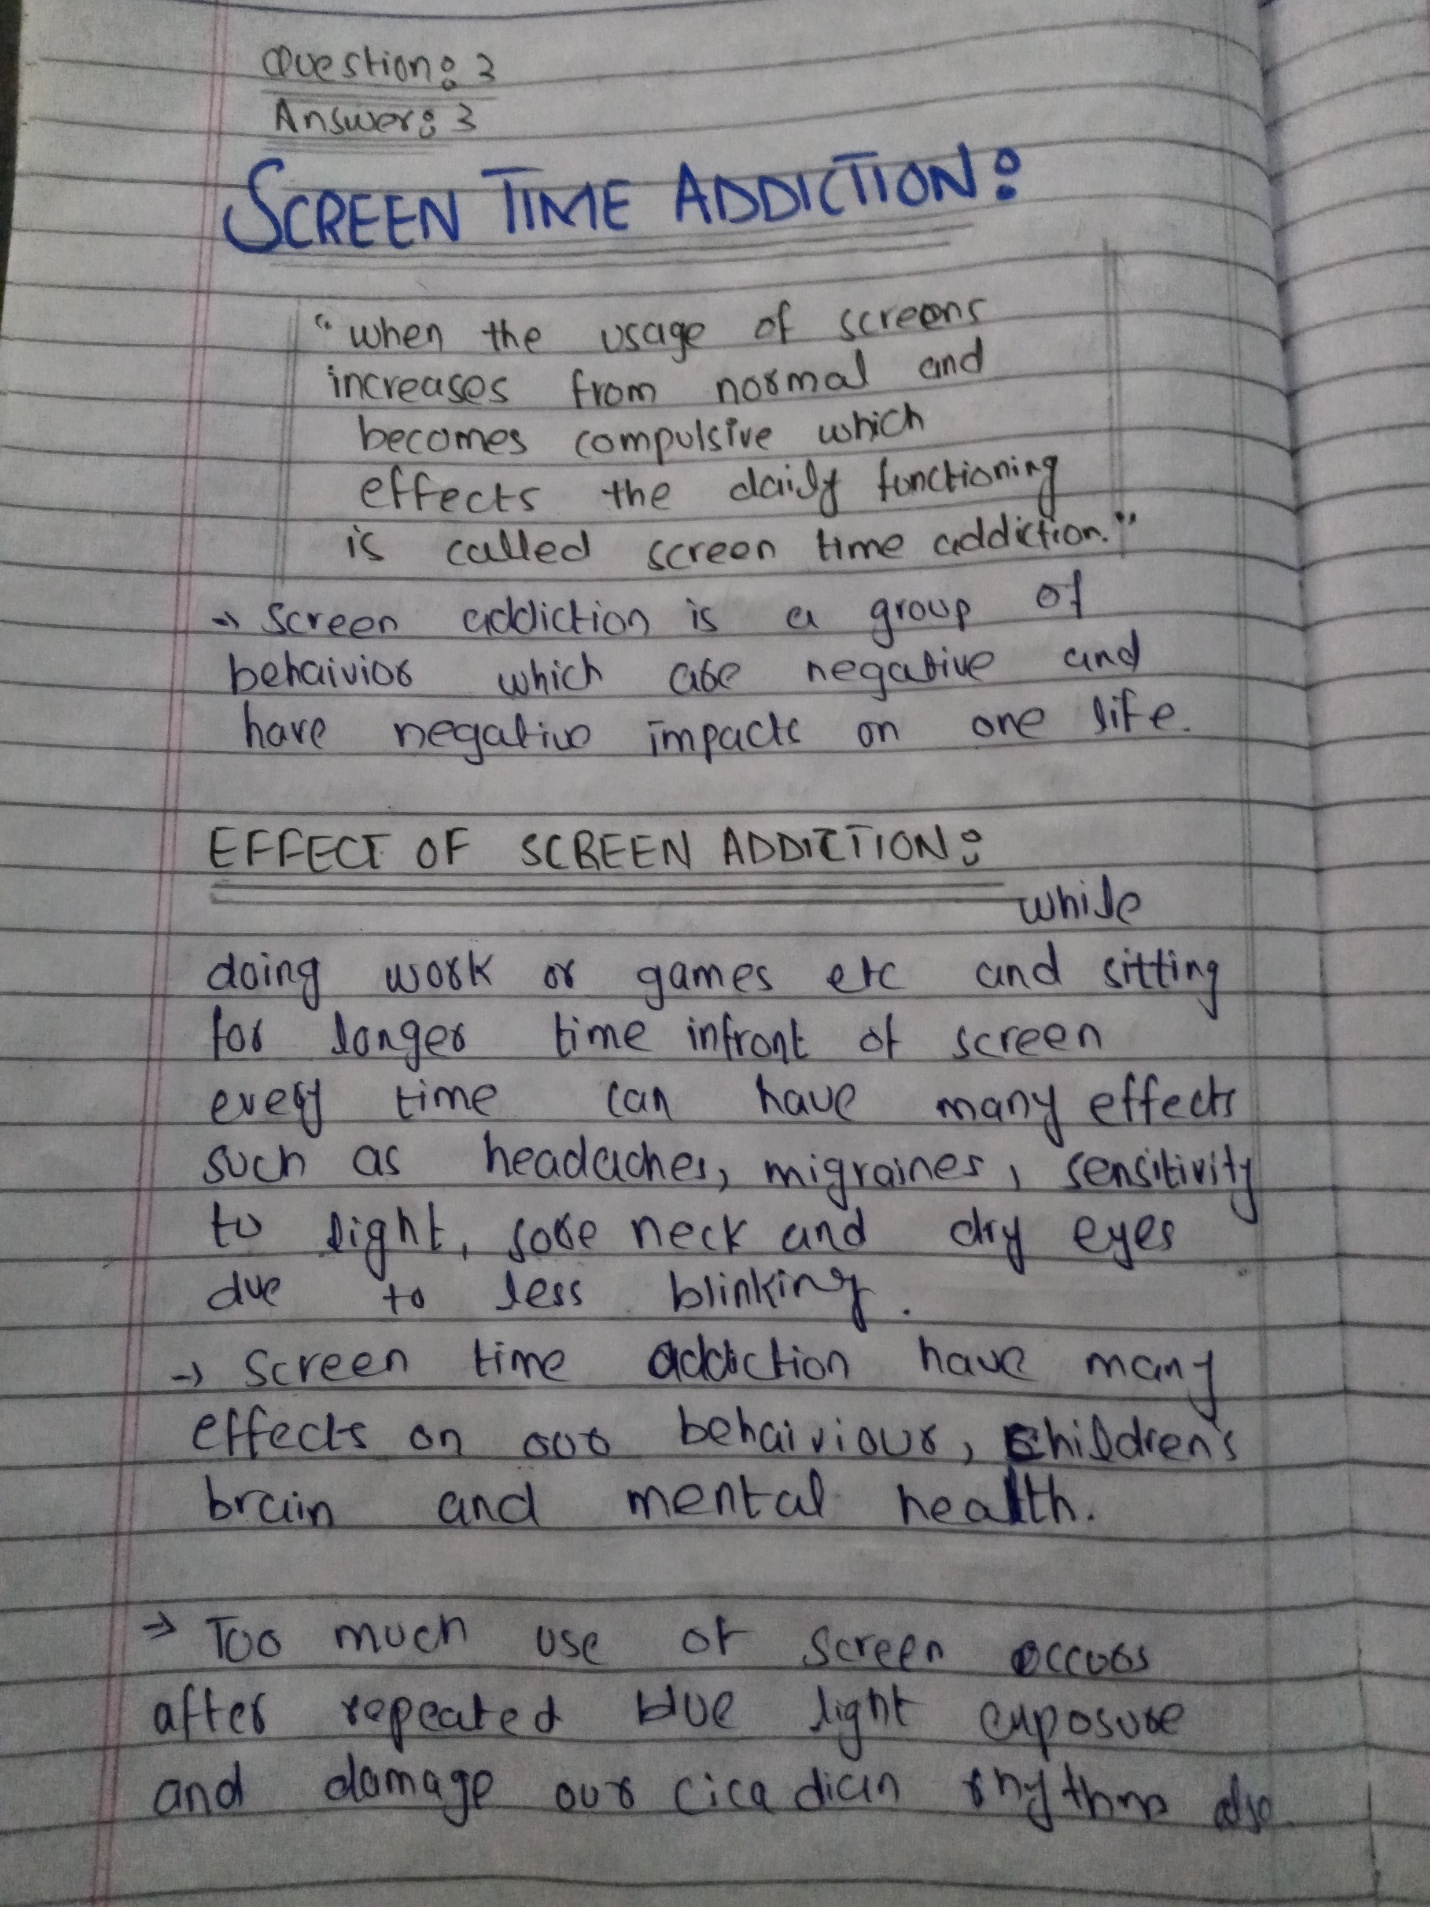 Question: 3
Answer: 3
SCREEN TIME ADDICTION:
"when the usage of screens
increases from normal and
becomes compulsive which
effects the daily functioning
is called screen time addiction."
→ Screen addiction is a group of
behaivior which are negative and
have negative impacts on one life.
EFFECT OF SCREEN ADDICTION:
while
doing work or games etc and sitting
for longer time infront of screen
every time can have many effects
such as headaches, migraines, sensitivity
to light, sore neck and dry eyes
due to less blinking.
→ Screen time addiction have many
effects on our behaiviour, Children's
brain and mental health.
→ Too much use of screen occurs
after repeated blue light exposure
and damage our cicadian rhythm also